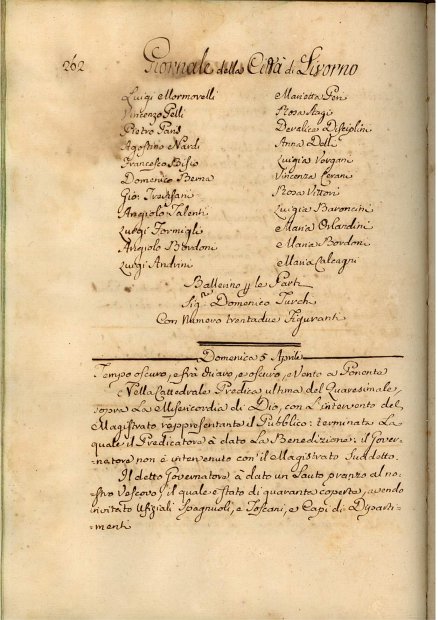 262 Giornale della Città di Livorno
Luigi Mormorelli Marietta Peri
Vincenzo Pelli Rosa Stagi
Pietro Paris Devalice Disciplini
Agostino Nardi Anna Delli
Francesco Bisio Luigia Vorgani
Domenico Berna Vincenza Cerani
Gio: Trevisani Rosa Vittori
Angiolo Talenti Luigia Baroncini
Luigi Formigli Maria Orlandini
Angiolo Bordoni Maria Bordoni
Luigi Andrini Maria Calcagni
Ballerino p le Parti
Sigr. Domenico Turchi
Con Numero trentadue Figuranti
Domenica 5 Aprile
Tempo oscuro, e frà chiaro, e oscuro, e vento a Ponente
Nella Cattedrale Predica ultima del Quaresimale,
sopra La Misericordia di Dio, con L'intervento del
Magistrato rappresentante il Pubblico: terminata La
quale il Predicatore à dato La Benedizione: il Gover=
=natore non è intervenuto con il Magistrato Suddetto.
Il detto Governatore à dato un Lauto pranzo al no=
=stro Vescovo, il quale è stato di quaranta coperte, avendo
invitato Ufiziali Spagnuoli, e Toscani, e Capi di Diparti=
=menti